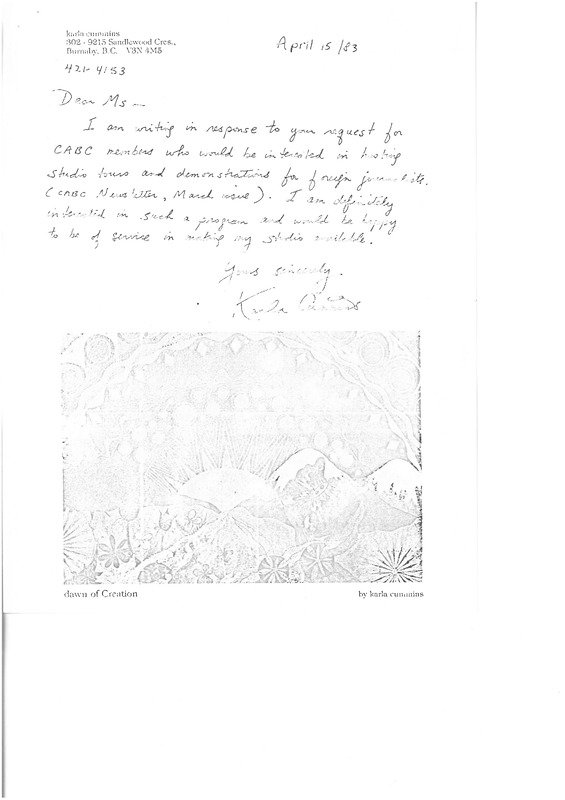 karla cummins
302 - 9215 Sandlewood Cres.,
Burnaby, B.C. V3N 4M5
April 15 /83
421-4153
Dear Ms —
I am writing in response to your request for
CABC members who would be interested in hosting
studio tours and demonstrations for foreign journalists.
(CABC Newsletter, March issue). I am definitely
interested in such a program and would be happy
to be of service in making my studio available.
Yours sincerely,
Karla Cummins
dawn of Creation
by karla cummins